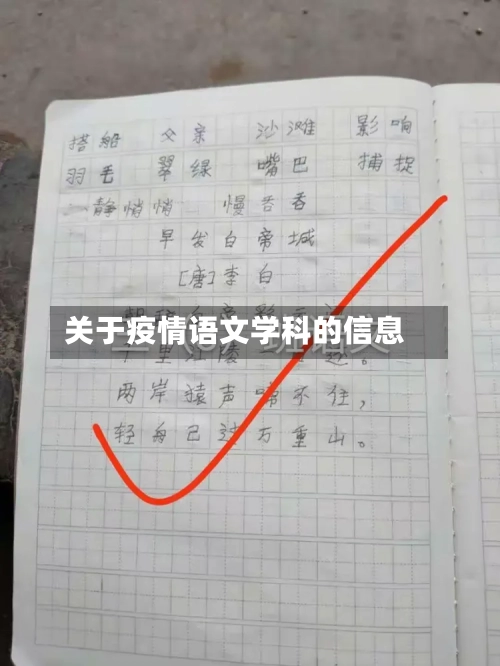 搭船 父亲 沙滩 影响
羽毛 翠绿 嘴巴 捕捉
静悄悄 慢吞吞
早发白帝城
[唐]李白
关于疫情语文学科的信息
里 陵 一
两岸猿声啼不住，
轻舟已过万重山。